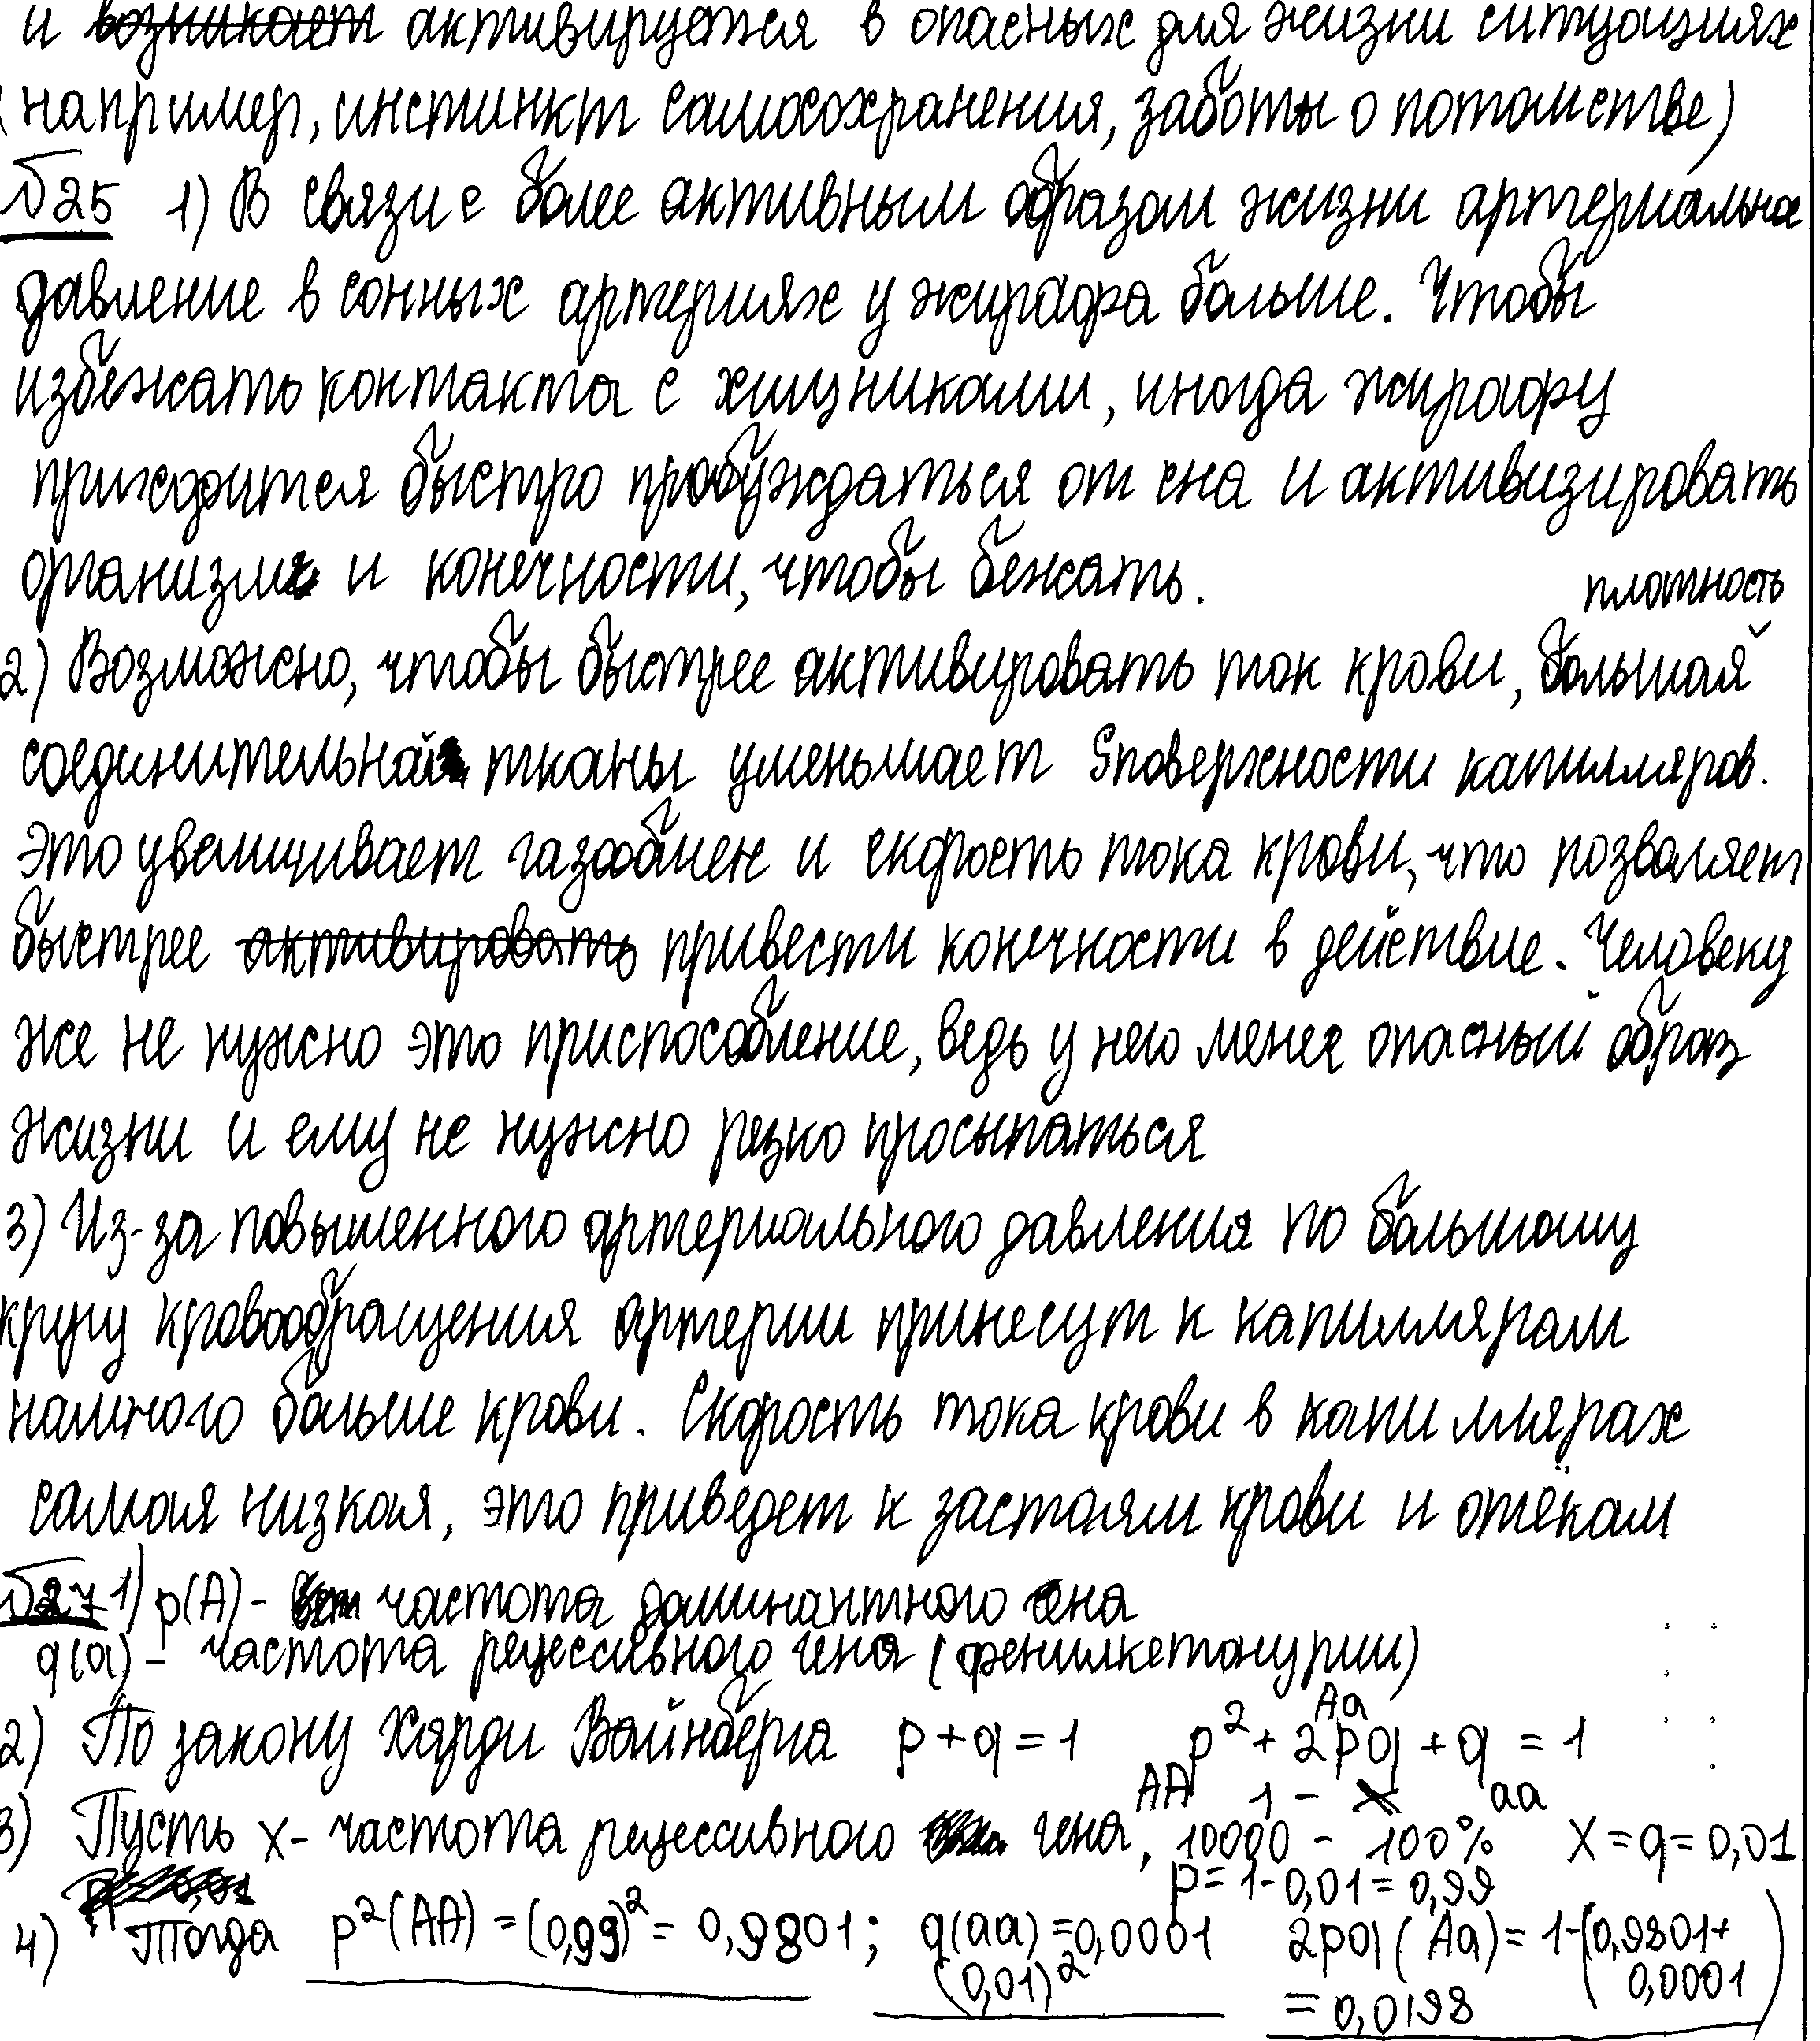 и возникает активируется в опасных для жизни ситуациях
(например, инстинкт самосохранения, заботы о потомстве)
№25 1) В связи с более активным образом жизни артериальное
давление в сонных артериях у жирафа больше. Чтобы
избежать контакта с хищниками, иногда жирафу
приходится быстро пробуждаться от сна и активизировать
организм и конечности, чтобы бежать.
плотность
2) Возможно, чтобы быстрее активировать ток крови, большая
соединительной ткани уменьшает S поверхности капилляров.
Это увеличивает газообмен и скорость тока крови, что позволяет
быстрее активировать привести конечности в действие. Человеку
же не нужно это приспособление, ведь у него менее опасный образ
жизни и ему не нужно резко просыпаться
3) Из-за повышенного артериального давления по большому
кругу кровообращения артерии принесут к капиллярам
намного больше крови. Скорость тока крови в капиллярах
самая низкая, это приведет к застоям крови и отёкам
№27 1) p(A) - частота доминантного гена
q(a) - частота рецессивного гена (фенилкетонурии)
2) По закону Харди Вайнберга p+q=1 p²+2pq+q=1
AA Aa aa
3) Пусть x- частота рецессивного гена, 10000 - 100% x=q=0,01
1 - x
p=1-0,01=0,99
4) Тогда p²(AA)=(0,99)²=0,9801; q(aa)=0,0001 2pq(Aa)=1-(0,9801+
(0,01)² 0,0001)
=0,0198